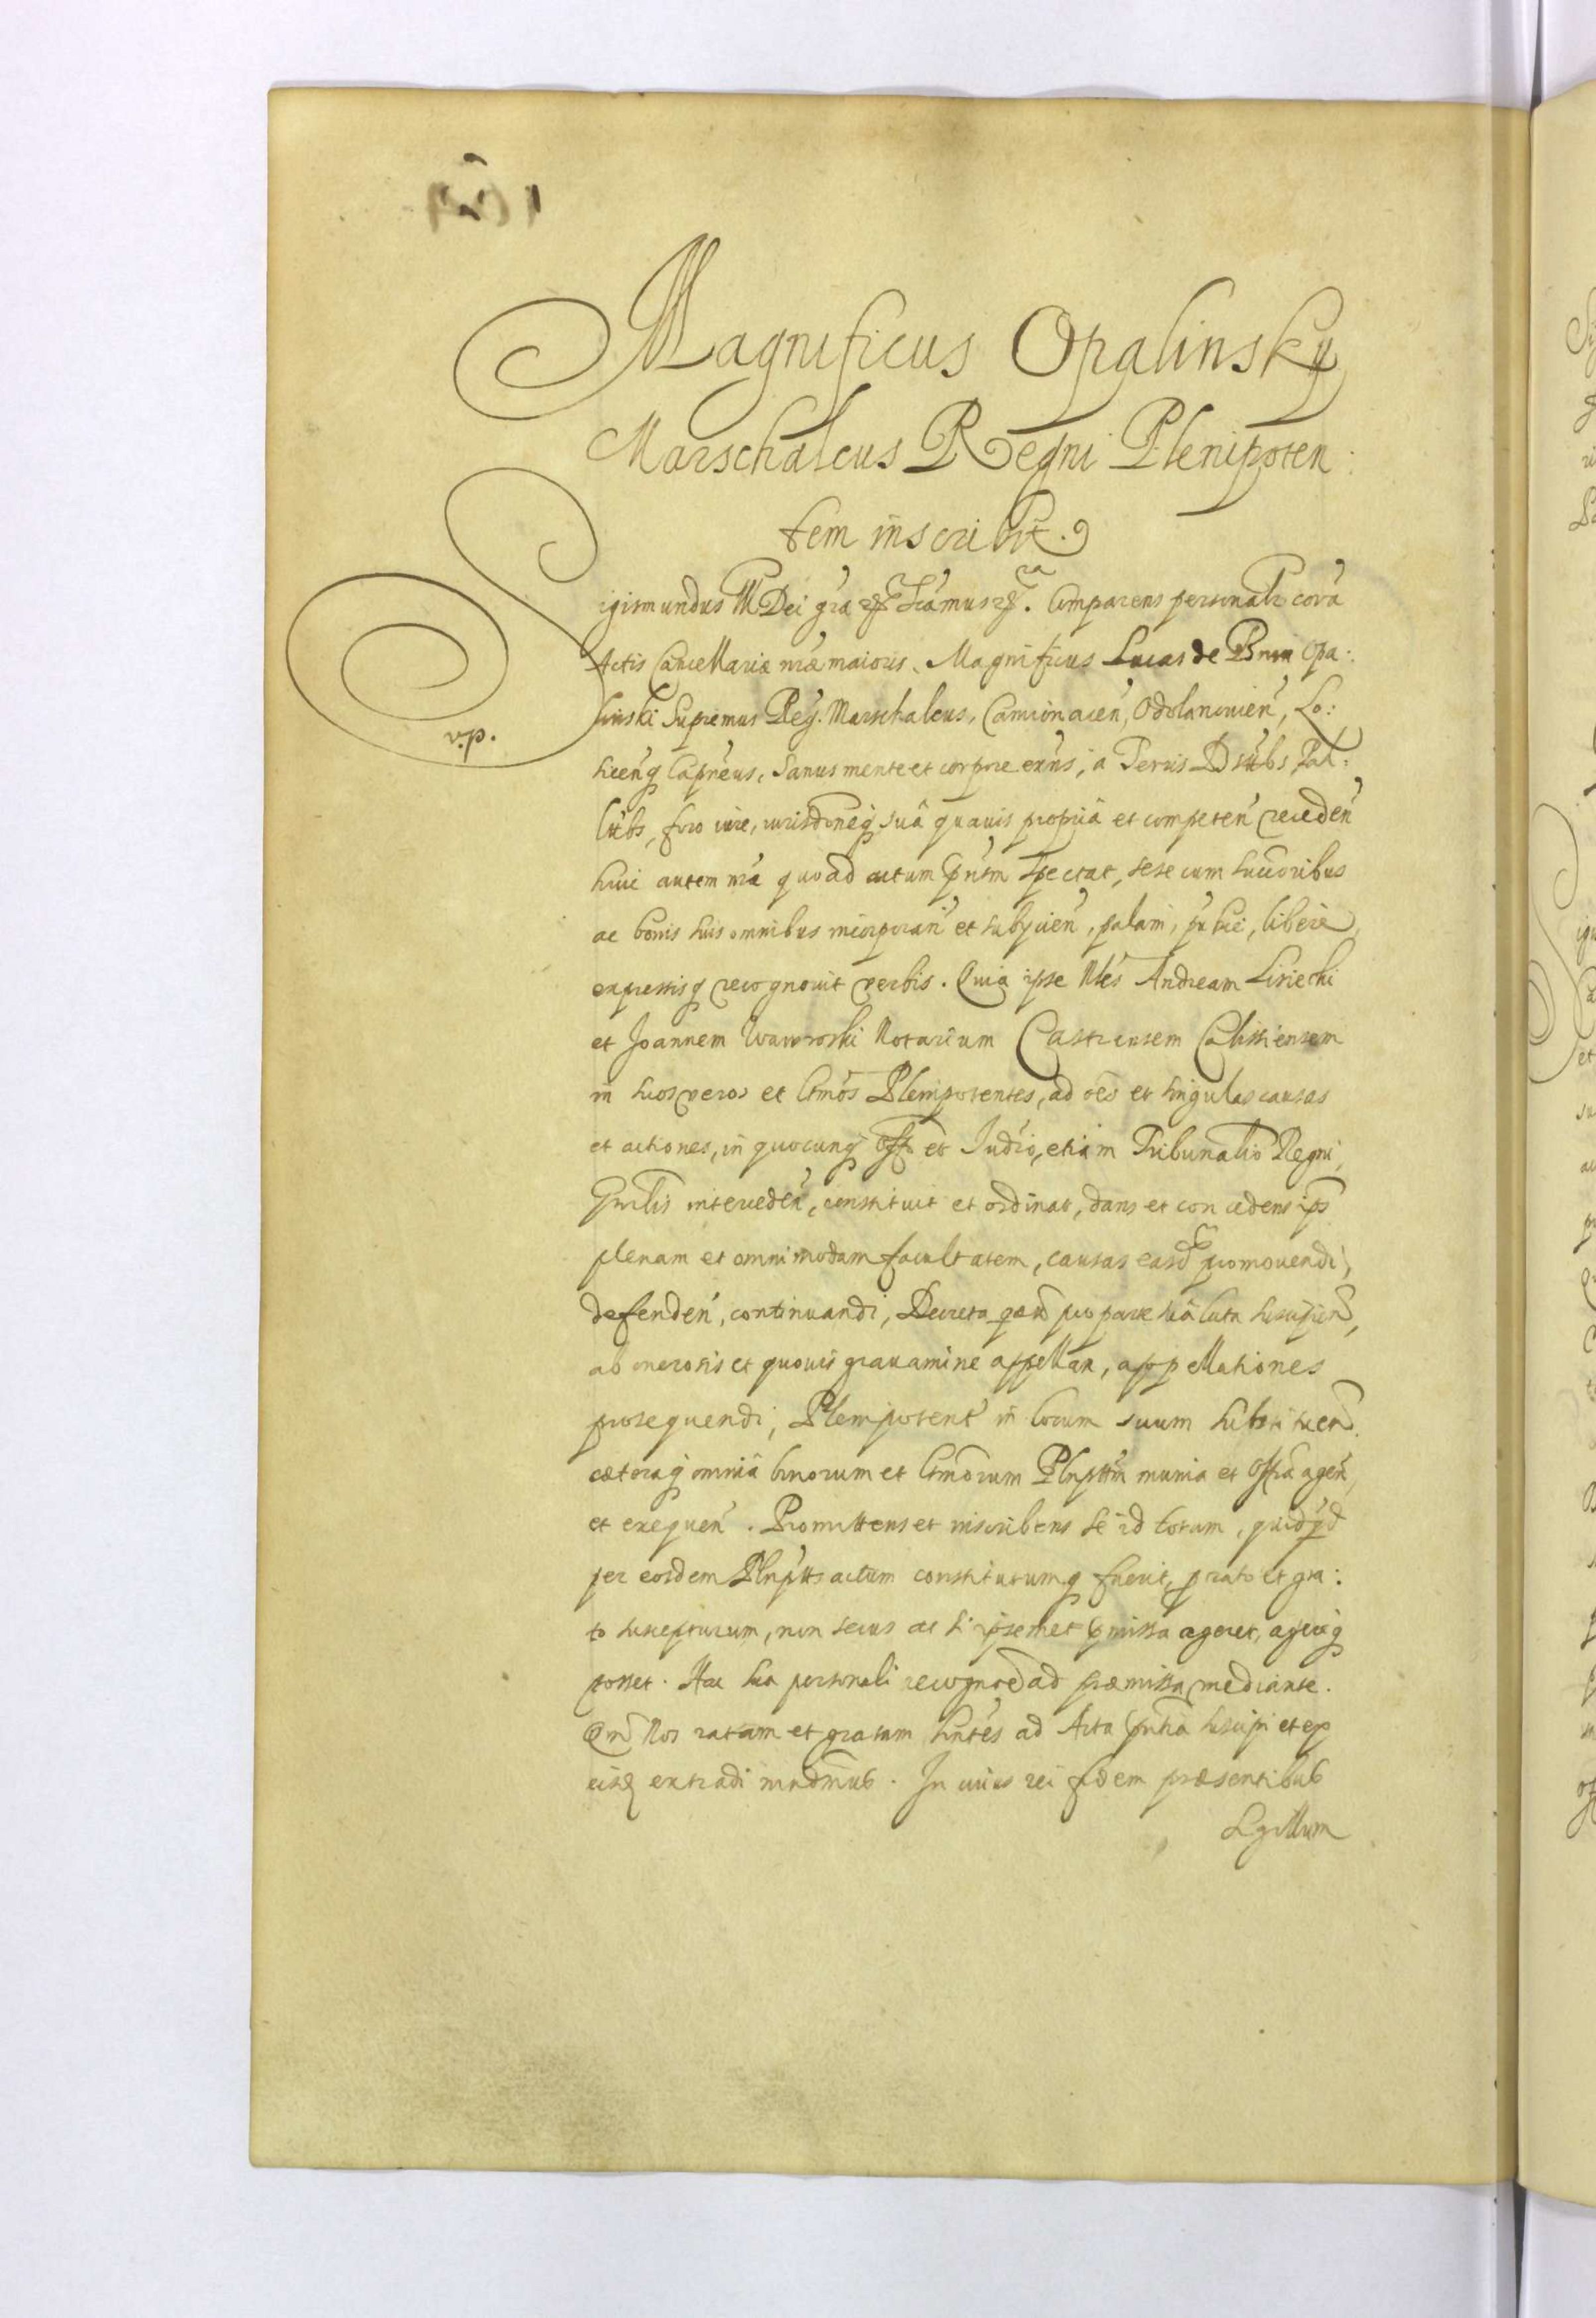 Magnificus Opalinsky
Marschalcus Regni Plenipoten:
tem inscribit.
Sigismundus III Dei gra etc. Comparens personalr corā
Actis Cancellariæ nr̄æ maioris. Magnificus Lucas de Bnin Opa:
linski Supremus Reg. Marschalcus, Camionacen̄, Odolanouien̄, Lo:
Capn̄eus, Sanus mente et corpore exn̄s, a Terris
foro iure, iurisdōneq suâ quauis propriâ et competen̄ receden̄
huic autem nr̄æ quoad actum spectat, sese cum succoribus
ac bonis suis omnibus incorporan̄ et subijcien̄, palam, libere
expressisq recognouit verbis. Quia ipse Nles Andream Lisiecki
et Joannem Wawrowski Notarium Castrensem Calissiensem
in suos veros et ltmōs Plenipotentes, ad oēs et singulas causas
et actiones, in quocunq Offo et Judīo, etiam Tribunalis Regni
Gn̄rlis interceden̄, constituit et ordinat, dans et concedens ips
plenam et omnimodam facultatem, causas easd promouendi,
defenden̄, continuandi, Decreta pro parte suâ lata suscipien̄,
ab onerosis et quouis grauamine appellan, appellationes
prosequendi, Plenipotent in locum suum substituen̄
cæteraq omniâ bonorum et ltmorum Plnpttm munia et offia agen̄
et exequen̄. Promittens et inscribens se id totum, quidqd
per eosdem Plnptts actum constitutumq fuerit, grato et gra:
to suscepturum, non secus ac si ipsemet pmissa ageret, agereq
posset. Hac sua personali recogn̄oe ad præmissa mediante.
Qm̄ Nos ratam et gratam hn̄tes ad Acta pn̄tia suscipi et ex
eisd extradi mndmus. In cuius rei fidem præsentibus
Sigillum
v.p.